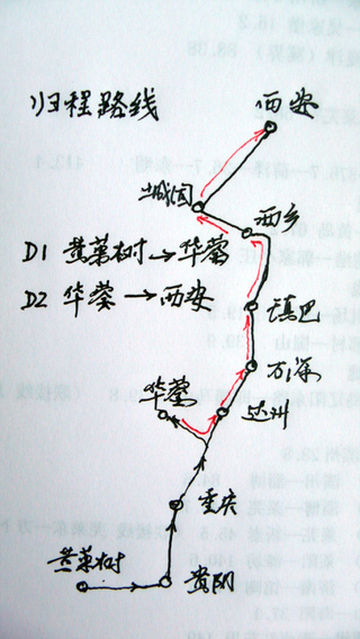 归程路线
西安
城固
西乡
D1 黄菓树→华蓥
D2 华蓥→西安
镇巴
万源
华蓥
达州
重庆
黄菓树
贵阳